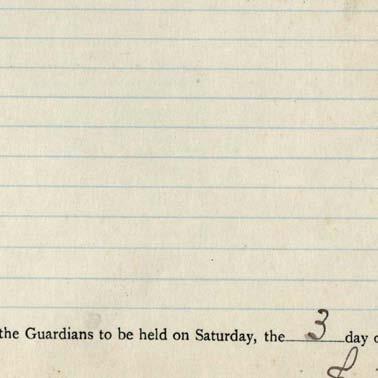 the Guardians to be held on Saturday, the 3 day